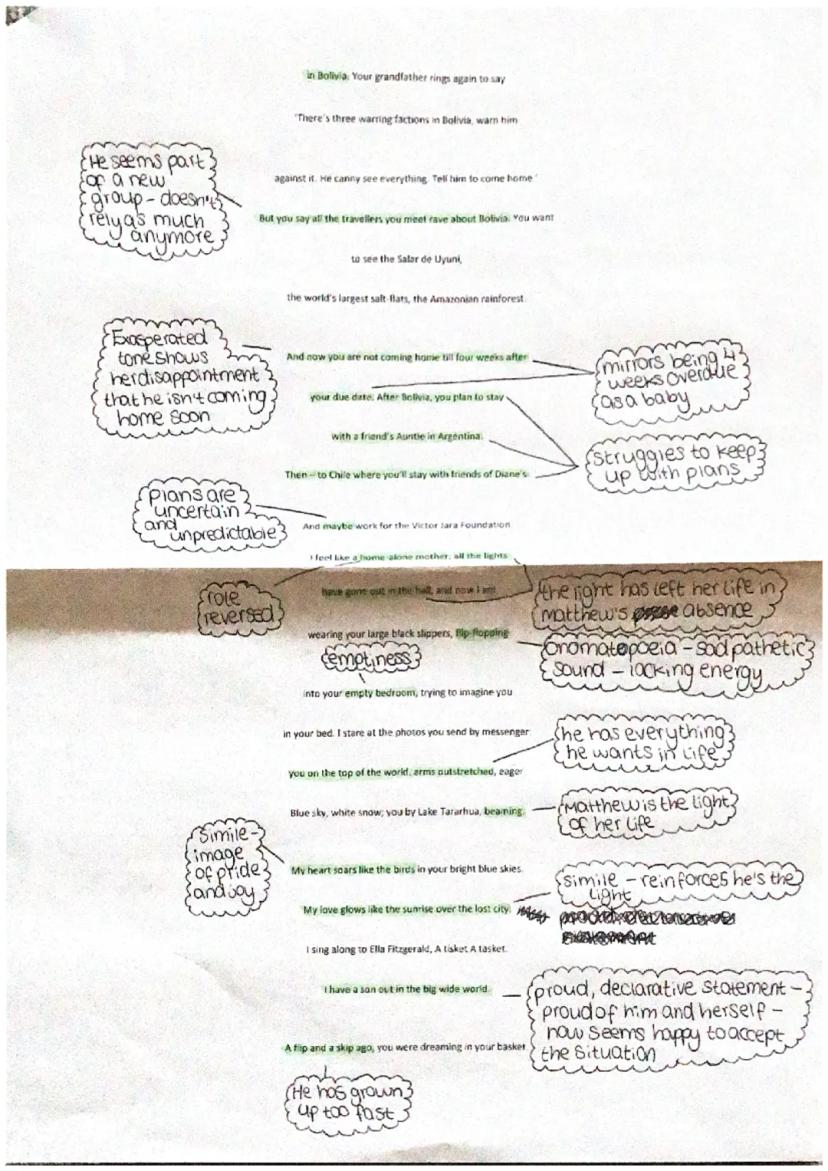 in Bolivia. Your grandfather rings again to say
'There's three warring factions in Bolivia, warn him
He seems part
of a new
group - doesn't
rely as much
anymore
against it. He canny see everything. Tell him to come home.'
But you say all the travellers you meet rave about Bolivia. You want
to see the Salar de Uyuni,
the world's largest salt-flats, the Amazonian rainforest.
Exasperated
tone shows
her disappointment
that he isn't coming
home soon
And now you are not coming home till four weeks after
mirrors being 4
weeks overdue
as a baby
your due date. After Bolivia, you plan to stay
with a friend's Auntie in Argentina.
struggles to keep
up with plans
Then – to Chile where you'll stay with friends of Diane's.
plans are
uncertain
and unpredictable
And maybe work for the Victor Jara Foundation.
I feel like a home-alone mother; all the lights
role
reversed
have gone out in the hall, and now I am
the light has left her life in
Matthew's absence
wearing your large black slippers, flip-flopping
onomatopoeia - sad pathetic
sound - lacking energy
emptiness
into your empty bedroom, trying to imagine you
in your bed. I stare at the photos you send by messenger:
he has everything
he wants in life
you on the top of the world, arms outstretched, eager.
Blue sky, white snow; you by Lake Tararhua, beaming.
Matthew is the light
of her life
Simile -
image
of pride
and joy
My heart soars like the birds in your bright blue skies.
simile - reinforces he's the
light
My love glows like the sunrise over the lost city.
I sing along to Ella Fitzgerald, A tisket A tasket.
I have a son out in the big wide world.
proud, declarative statement -
proud of him and herself -
now seems happy to accept
the situation
A flip and a skip ago, you were dreaming in your basket.
He has grown
up too fast